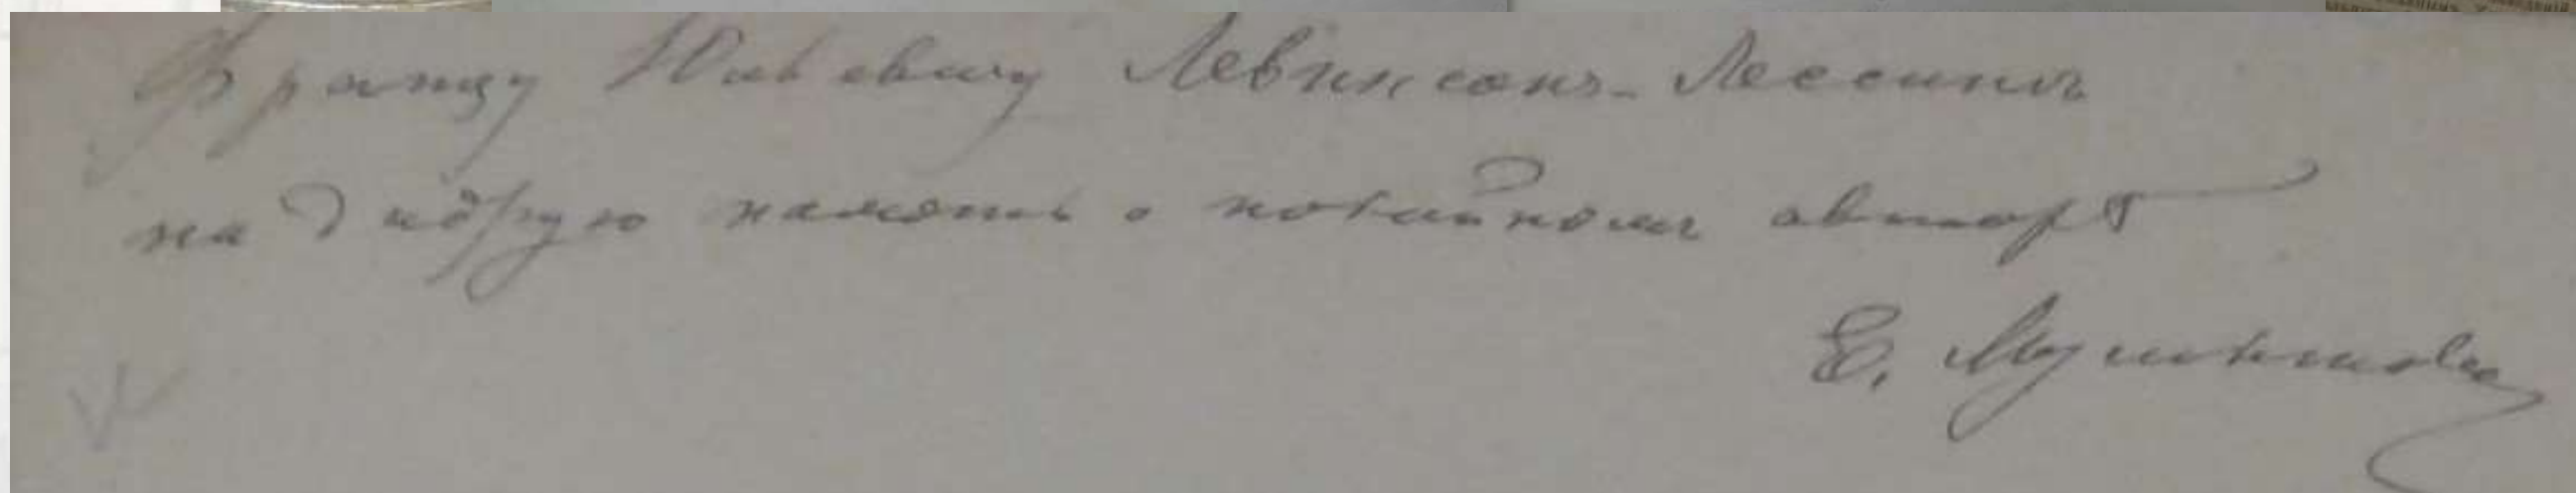 Францу Юльевичу Левинсонъ-Лессингъ
на добрую память о покойномъ авторѣ
Е. Мушкетова